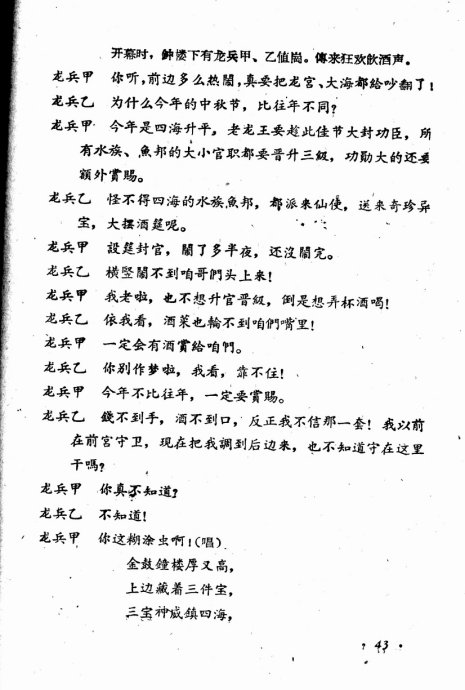 开幕时，鈡楼下有龙兵甲、乙值崗。傳来狂欢飲酒声。
龙兵甲 你听，前边多么热鬧，真要把龙宫、大海都给吵翻了！
龙兵乙 为什么今年的中秋节，比往年不同？
龙兵甲 今年是四海升平，老龙王要趁此佳节大封功臣，所
有水族、魚邦的大小官职都要晋升三級，功勛大的还要
額外賞賜。
龙兵乙 怪不得四海的水族魚邦，都派来仙使，送来奇珍异
宝，大摆酒筵呢。
龙兵甲 設筵封官，鬧了多半夜，还沒鬧完。
龙兵乙 横竪鬧不到咱哥們头上来！
龙兵甲 我老啦，也不想升官晋級，倒是想弄杯酒喝！
龙兵乙 依我看，酒菜也輪不到咱們嘴里！
龙兵甲 一定会有酒賞給咱們。
龙兵乙 你别作梦啦，我看，靠不住！
龙兵甲 今年不比往年，一定要賞賜。
龙兵乙 錢不到手，酒不到口，反正我不信那一套！我以前
在前宫守卫，现在把我調到后边来，也不知道守在这里
干嗎？
龙兵甲 你真不知道？
龙兵乙 不知道！
龙兵甲 你这糊涂虫啊！（唱）
金鼓鐘楼厚又高，
上边藏着三件宝，
三宝神威鎮四海，
43